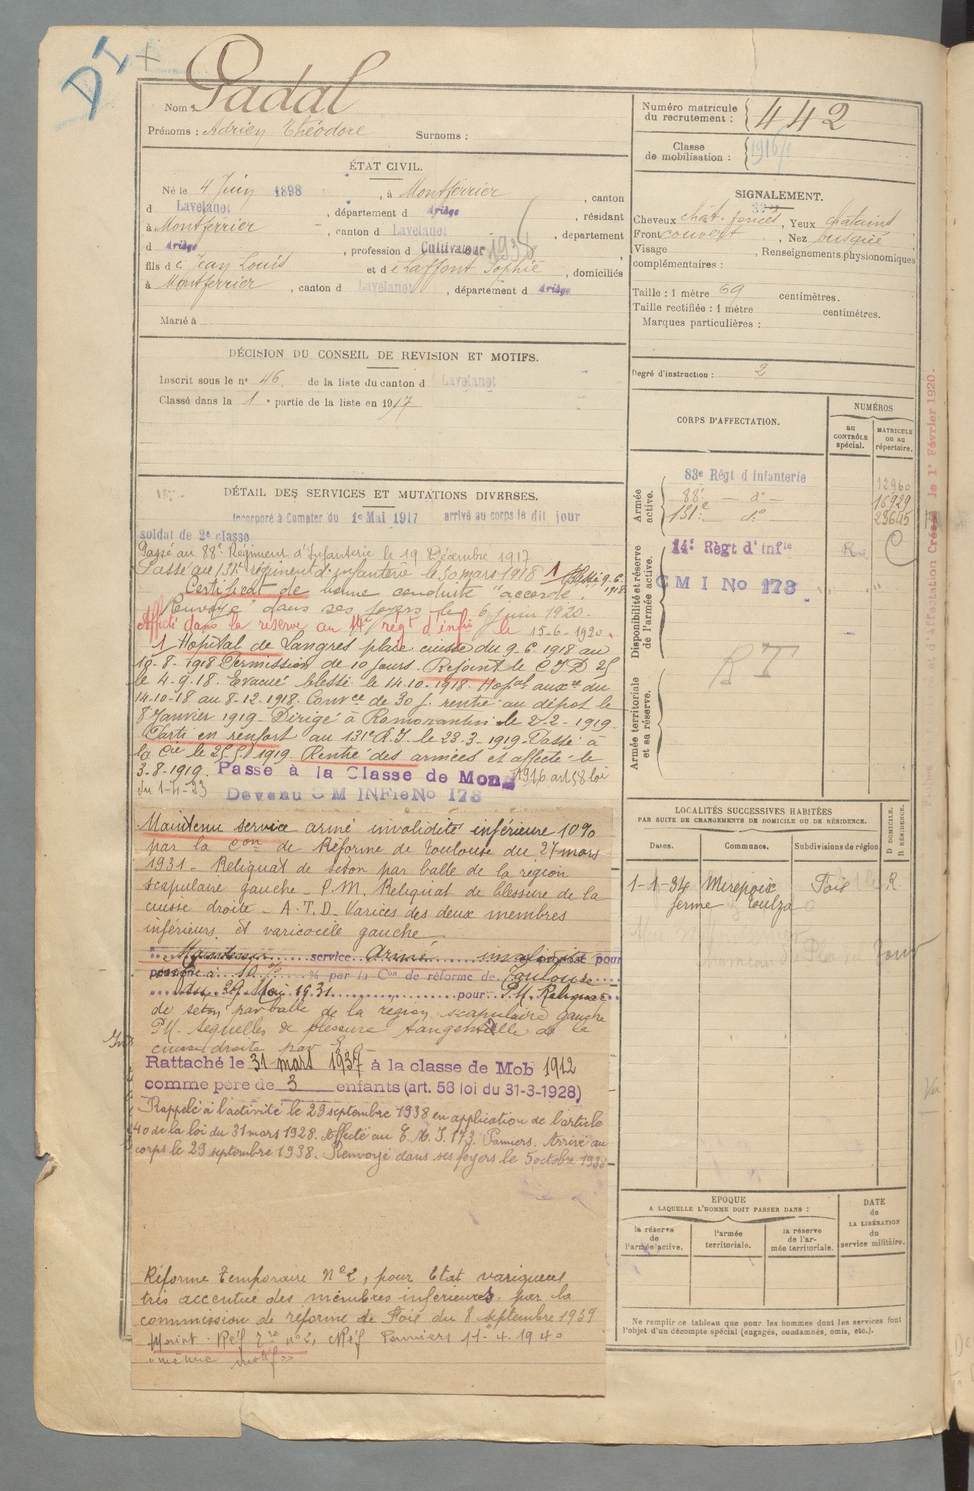 DI
Nom : Padal
Prénoms : Adrien Théodore Surnoms :
ÉTAT CIVIL.
Né le 4 Juin 1898, à Montferrier, canton
d Lavelanet, département d Ariège, résidant
à Montferrier, canton d Lavelanet, département
d Ariège, profession d Cultivateur 1938
fils de Jean Louis et de Laffont Sophie, domiciliés
à Montferrier, canton d Lavelanet, département d Ariège
Marié à
DÉCISION DU CONSEIL DE REVISION ET MOTIFS.
Inscrit sous le n° 46 de la liste du canton d Lavelanet
Classé dans la 1e partie de la liste en 1917
DÉTAIL DES SERVICES ET MUTATIONS DIVERSES.
Incorporé à Compter du 1e Mai 1917 arrivé au corps le dit jour
soldat de 2e classe
Passé au 88e Régiment d'Infanterie le 19 Décembre 1917
Passé au 131e régiment d'infanterie le 30 mars 1918 1 Blessé 9.6.1918
Certificat de bonne conduite "accordé".
Renvoyé dans ses foyers le 6 juin 1920
Affecté dans la réserve au 14e régt d'infie le 15-6-1920.
1 Hopital de Langres plaie cuisse du 9.6.1918 au
19-8-1918 Permission de 10 jours. Rejoint le C.I.D. 25
le 4-9-18. Evacué blessé le 14.10.1918. Hopal auxre du
14-10-18 au 8-12-1918. Convce de 30 j. rentré au dépôt le
8 Janvier 1919. Dirigé à Romorantin le 2-2-1919.
Parti en renfort au 131e R.I. le 23-3-1919. Passé à
la Cie le 25.5.1919. Rentré des armées et affecté le
3-8-1919. Passé à la Classe de Mob 1916 art 58 loi
du 1-4-23 Devenu C M INFie No 173
Maintenu service armé invalidité inférieure 10%
par la Con de Réforme de Toulouse du 27 mars
1931 - Reliquat de séton par balle de la région
scapulaire gauche - P.M. Reliquat de blessure de la
cuisse droite - A.T.D. Varices des deux membres
inférieurs et varicocèle gauche
Maintenu service Armé proposé pour
pension à 10 % par la Con de réforme de Toulouse
du 29 Mai 1931 pour : P.M. Reliquat
de séton par balle de la région scapulaire gauche
P.M. Séquelles de blessure tangentielle de la
cuisse droite par
Rattaché le 31 mars 1937 à la classe de Mob 1912
comme père de 3 enfants (art. 58 loi du 31-3-1928)
Rappelé à l'activité le 29 septembre 1938 en application de l'article
40 de la loi du 31 mars 1928. Affecté au C.M.I. 173 Pamiers. Arrivé au
corps le 29 septembre 1938. Renvoyé dans ses foyers le 5 octobre 1938
Réforme temporaire N°2, pour Etat variqueux
très accentué des membres inférieurs, par la
commission de réforme de Foix du 8 septembre 1939
Maint. Réf. Tre n°2, CRéf Pamiers 11-4.1940
"même motif"
Numéro matricule du recrutement : 442
Classe de mobilisation : 1916
SIGNALEMENT.
Cheveux chât. foncé, Yeux chatains
Front couvert, Nez busqué
Visage, Renseignements physionomiques
complémentaires :
Taille : 1 mètre 69 centimètres.
Taille rectifiée : 1 mètre centimètres.
Marques particulières :
Degré d'instruction : 2
CORPS D'AFFECTATION.
NUMÉROS
AU CONTRÔLE spécial.
MATRICULE OU AU répertoire.
Armée active.
83e Régt d'Infanterie 12960
88e — do — 16929
131e do 23645
Disponibilité et réserve de l'armée active.
14e Règt d'Infie R C
C M I No 173
Armée territoriale et sa réserve.
RT
et d'Affectation Créées le 1er Février 1920.
LOCALITÉS SUCCESSIVES HABITÉES
PAR SUITE DE CHANGEMENTS DE DOMICILE OU DE RÉSIDENCE.
Dates.
Communes.
Subdivisions de région
D DOMICILE. R RÉSIDENCE.
1-1-34 Mirepoix Foix R.
ferme
EPOQUE
A LAQUELLE L'HOMME DOIT PASSER DANS :
la réserve de l'armée active.
l'armée territoriale.
la réserve de l'armée territoriale.
DATE de LA LIBÉRATION du service militaire.
Ne remplir ce tableau que pour les hommes dont les services font
l'objet d'un décompte spécial (engagés, condamnés, omis, etc.).